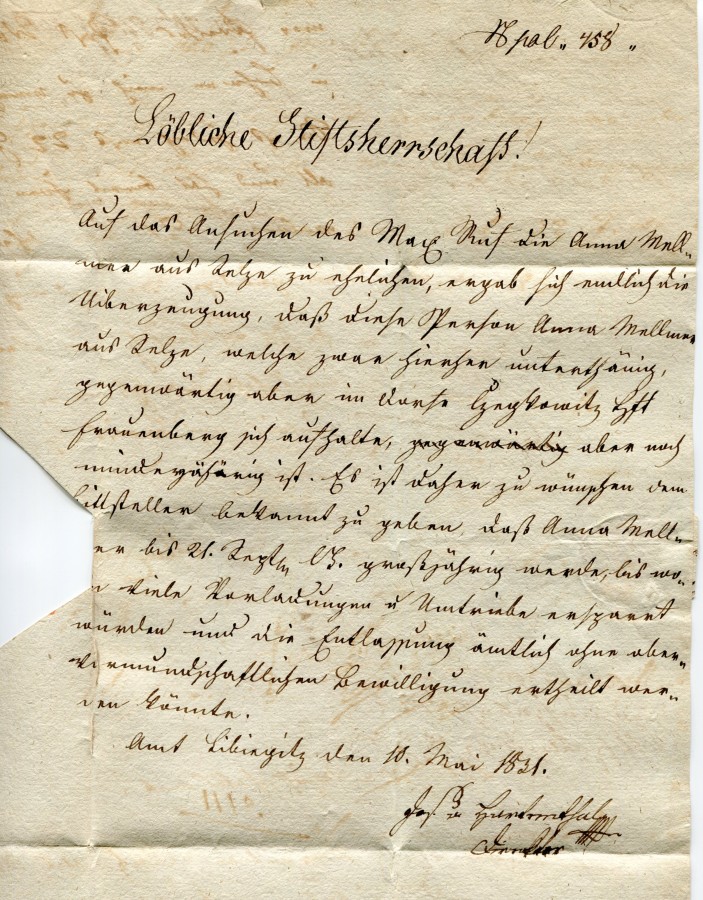 Npol. 458.
Löbliche Stiftsherrschaft!
Auf das Ansuchen des Max Ruf die Anna Mell-
mer aus Selze zu ehelichen, ergab sich endlich die
Uiberzeugung, daß diese Person Anna Mellmer
aus Selze, welche zwar hierher unterthänig,
gegenwärtig aber im Dorfe Hft
Frauenberg sich aufhalte, gegenwärtig aber noch
minderjährig ist. Es ist daher zu wünschen dem
Bittsteller bekannt zu geben, daß Anna Mell-
er bis 21. Septr großjährig werde, bis wo-
viele Vorladungen u Umtriebe erspart
würden und die Entlassung ämtlich ohne ober-
vormundschaftlichen Bewilligung ertheilt wer-
den könnte.
Amt Libiegitz den 10. Mai 1831.
Jos.